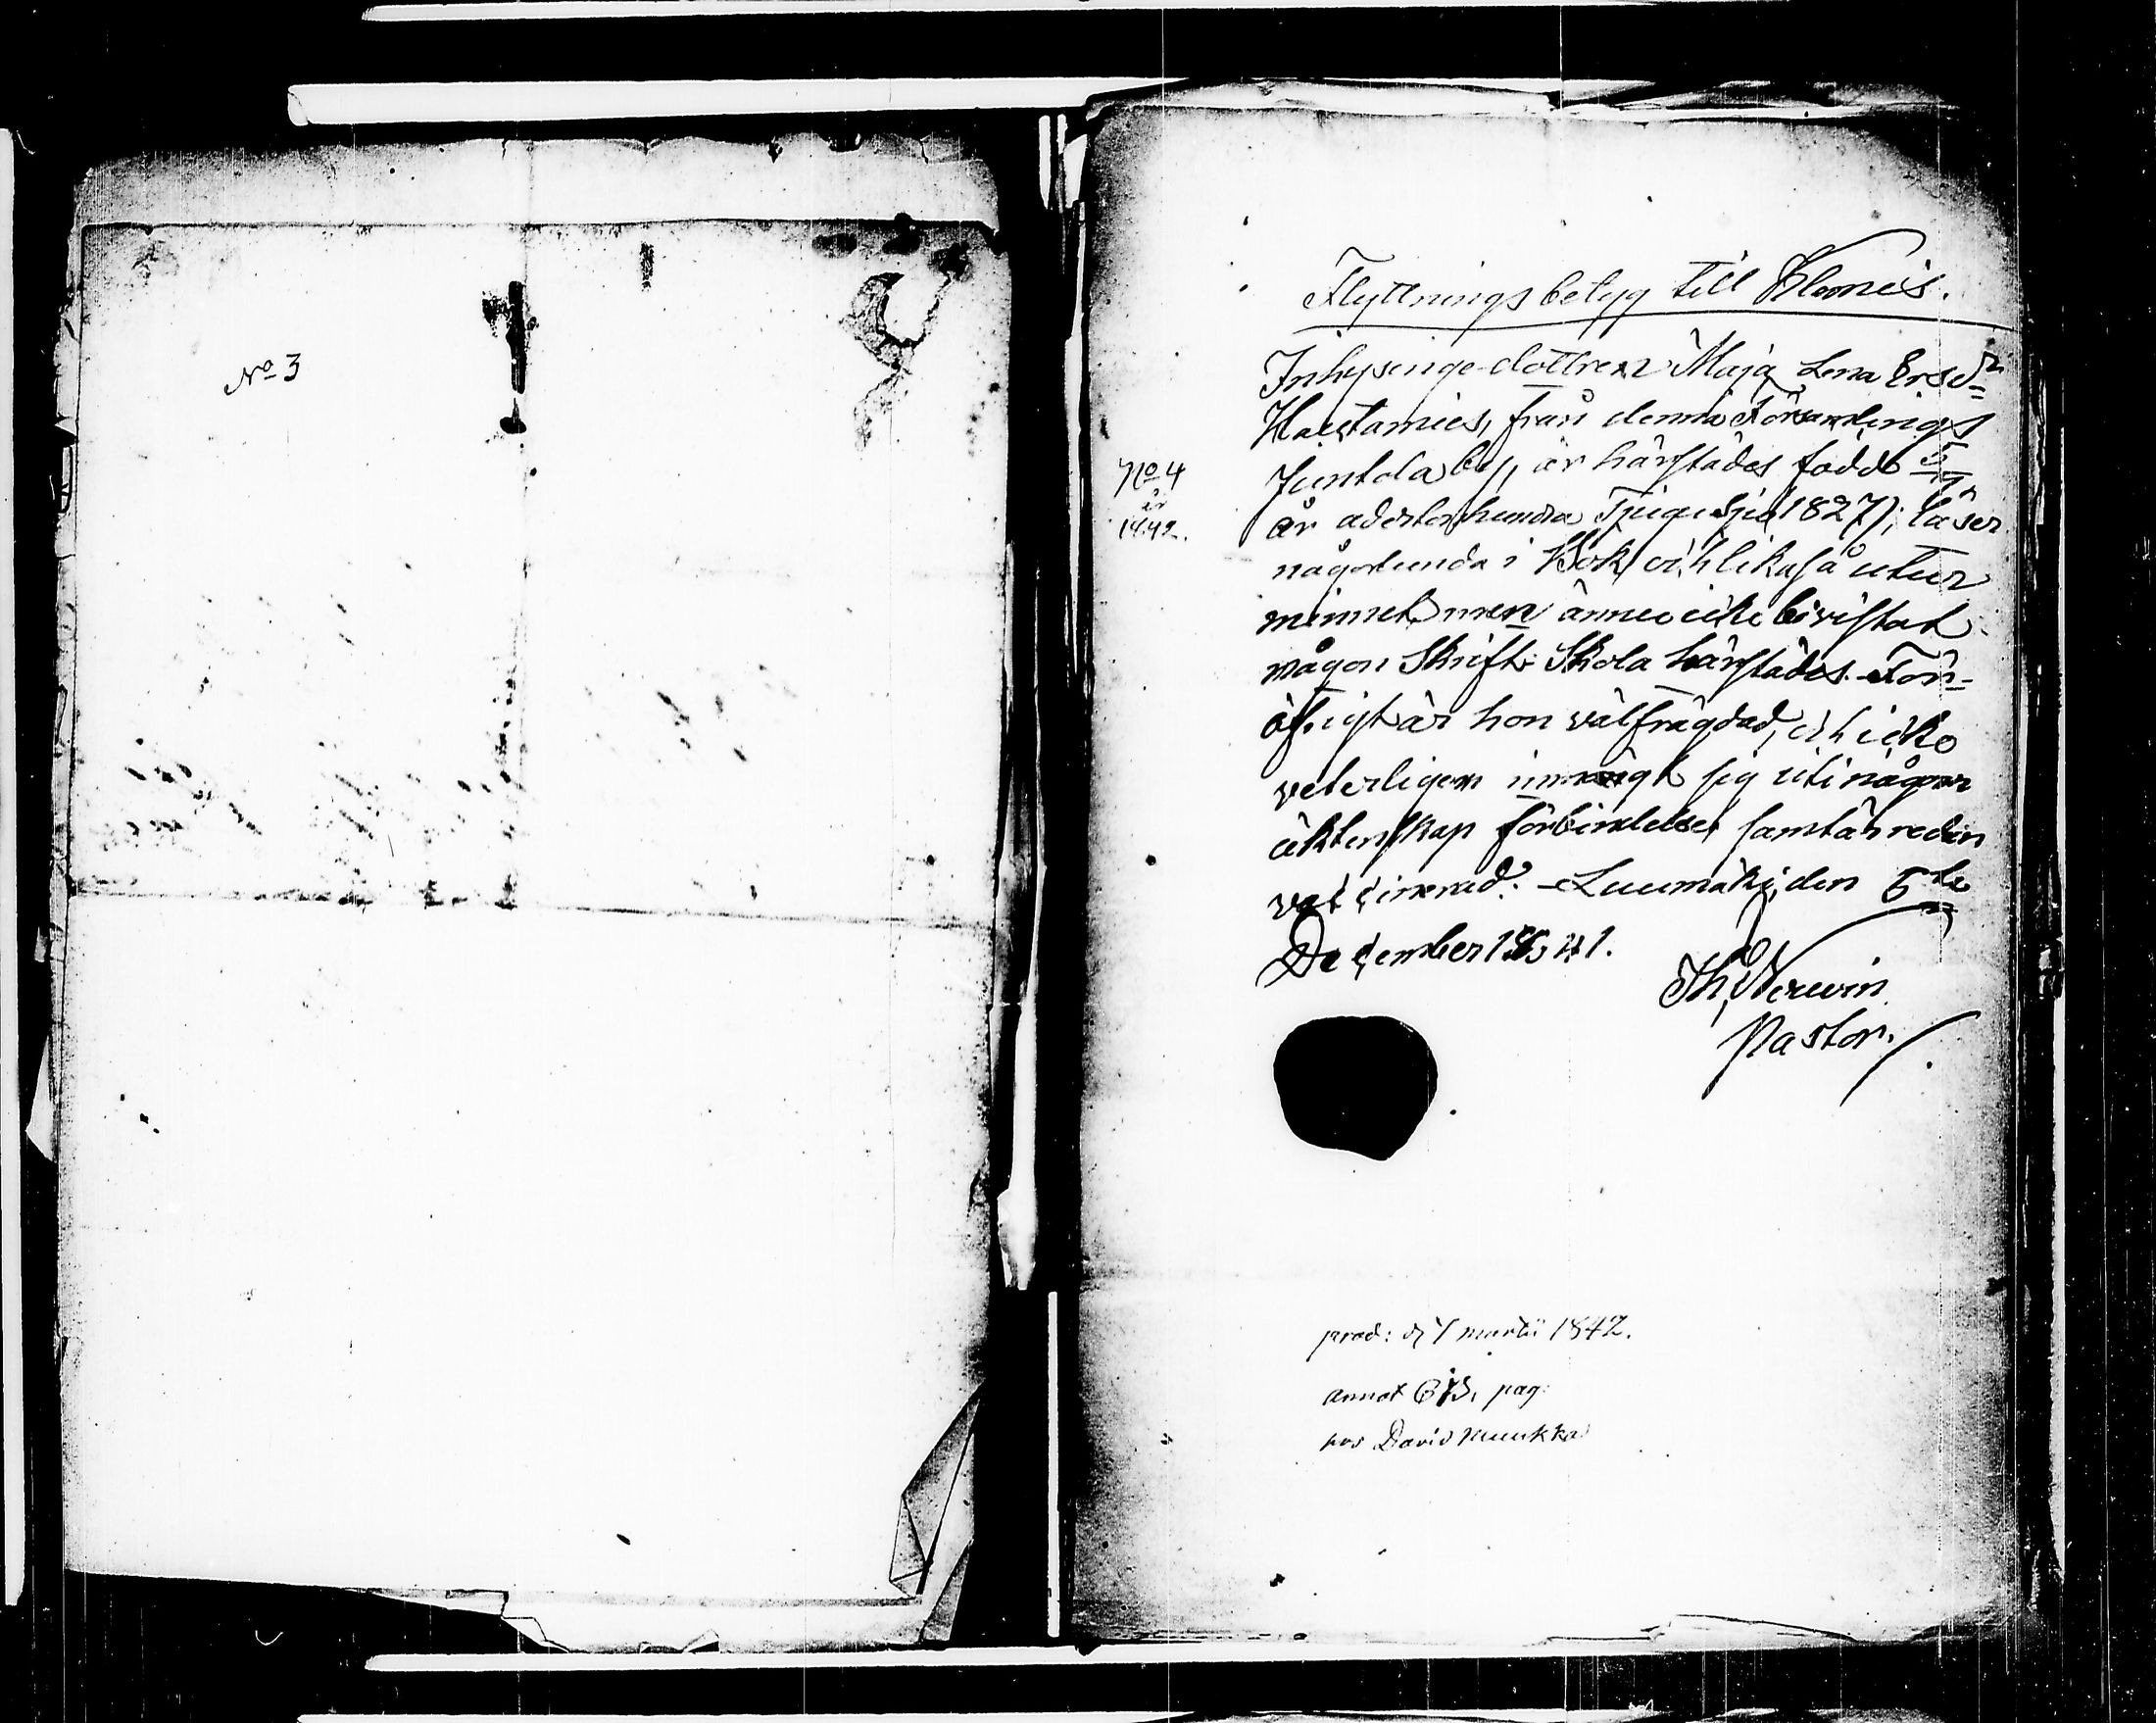 No 3
Flyttningsbetyg till Klemis.
Inhysinge-dottren Maja Lena Ersdr
Haistamies, från denna Församlings
Juntola by, är härstädes född 5/7
No 4
år
1842.
år adertonhundra Tjugusju (1827); läser
någorlunda i Bok och likaså utur
minnet men ännu icke bivistat
någon Skrift-Skola härstädes. För-
öfrigt är hon välfrägdad, och icke
veterligen inmängt sig uti någon
äktenskaps förbindelse, samt är redan
vaccinerad. Luumäki, den 5te
December 1841.
Th,
Pastor.
prod: d 7 martii 1842.
annot 673, pag:
hos David Muukka